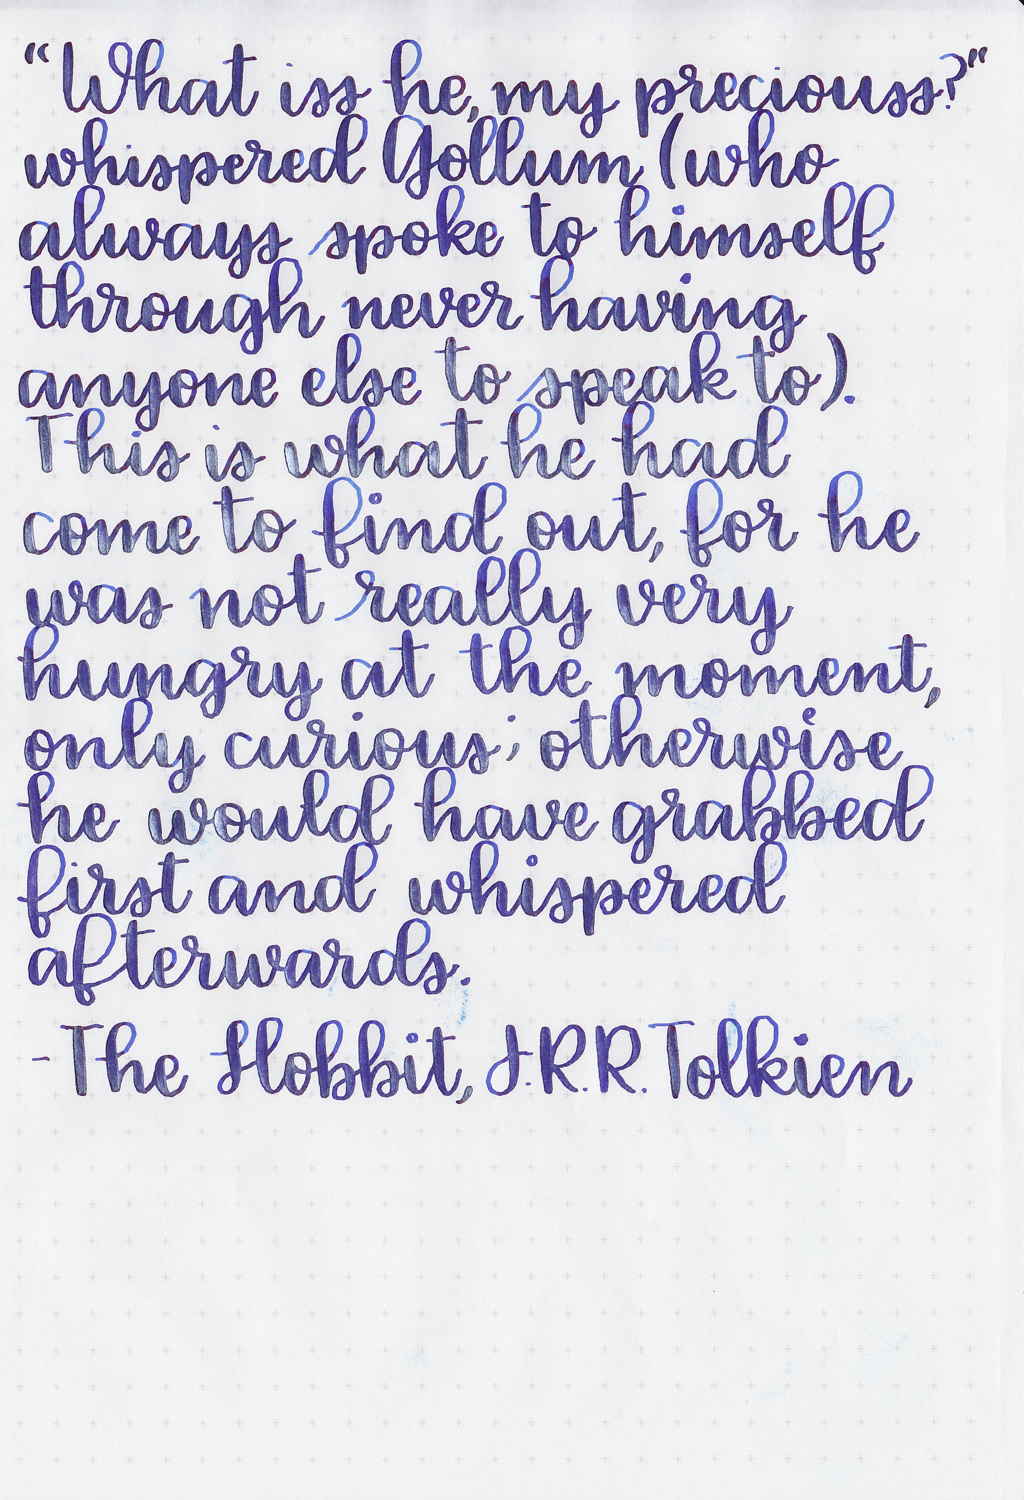 “What iss he, my preciouss?”
whispered Gollum (who
always spoke to himself
through never having
anyone else to speak to).
This is what he had
come to find out, for he
was not really very
hungry at the moment,
only curious; otherwise
he would have grabbed
first and whispered
afterwards.
-The Hobbit, J.R.R. Tolkien